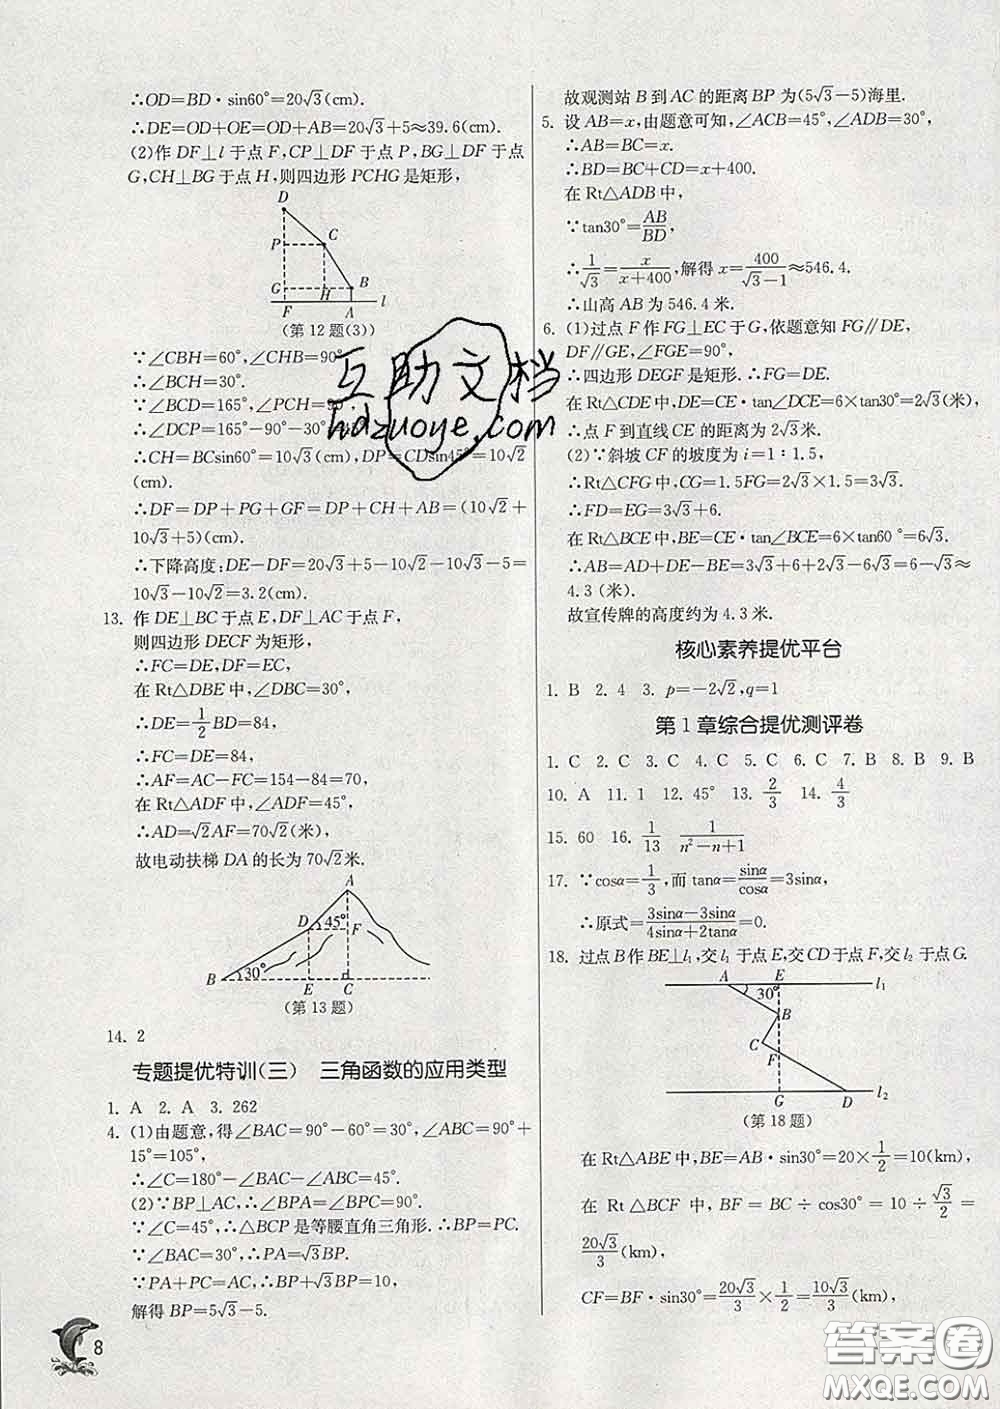 ∴OD=BD·sin60°=20√3(cm).
∴DE=OD+OE=OD+AB=20√3+5≈39.6(cm).
(2)作 DF⊥l 于点 F,CP⊥DF 于点 P,BG⊥DF 于点
G,CH⊥BG 于点 H,则四边形 PCHG 是矩形,
D
P
C
G
H
B
F
A
l
(第 12 题(3))
∵∠CBH=60°,∠CHB=90°
∴∠BCH=30°.
∵∠BCD=165°,∠PCH=90°
∴∠DCP=165°-90°-30°
∴CH=BCsin60°=10√3(cm),DP=CDsin45°=10√2
(cm).
∴DF=DP+PG+GF=DP+CH+AB=(10√2+
10√3+5)(cm).
∴下降高度:DE-DF=20√3+5-10√2-10√3-5=
10√3-10√2=3.2(cm).
13. 作 DE⊥BC 于点 E,DF⊥AC 于点 F,
则四边形 DECF 为矩形,
∴FC=DE,DF=EC,
在 Rt△DBE 中,∠DBC=30°,
∴DE=1/2 BD=84,
∴FC=DE=84,
∴AF=AC-FC=154-84=70,
在 Rt△ADF 中,∠ADF=45°,
∴AD=√2AF=70√2(米),
故电动扶梯 DA 的长为 70√2米.
A
D
45°
F
B
30°
E
C
(第 13 题)
14. 2
专题提优特训(三) 三角函数的应用类型
1. A 2. A 3. 262
4. (1)由题意,得∠BAC=90°-60°=30°,∠ABC=90°+
15°=105°,
∴∠C=180°-∠BAC-∠ABC=45°.
(2)∵BP⊥AC,∴∠BPA=∠BPC=90°.
∵∠C=45°,∴△BCP 是等腰直角三角形.∴BP=PC.
∵∠BAC=30°,∴PA=√3BP.
∵PA+PC=AC,∴BP+√3BP=10,
解得 BP=5√3-5.
8
故观测站 B 到 AC 的距离 BP 为(5√3-5)海里.
5. 设 AB=x,由题意可知,∠ACB=45°,∠ADB=30°,
∴AB=BC=x.
∴BD=BC+CD=x+400.
在 Rt△ADB 中,
∵tan30°=AB/BD,
∴1/√3=x/(x+400),解得 x=400/(√3-1)≈546.4.
∴山高 AB 为 546.4 米.
6. (1)过点 F 作 FG⊥EC 于 G,依题意知 FG∥DE,
DF∥GE,∠FGE=90°,
∴四边形 DEGF 是矩形.∴FG=DE.
在 Rt△CDE 中,DE=CE·tan∠DCE=6×tan30°=2√3(米),
∴点 F 到直线 CE 的距离为 2√3米.
(2)∵斜坡 CF 的坡度为 i=1:1.5,
∴Rt△CFG 中,CG=1.5FG=2√3×1.5=3√3.
∴FD=EG=3√3+6.
在 Rt△BCE 中,BE=CE·tan∠BCE=6×tan60°=6√3.
∴AB=AD+DE-BE=3√3+6+2√3-6√3=6-√3≈
4.3 (米).
故宣传牌的高度约为 4.3 米.
核心素养提优平台
1. B 2. 4 3. p=-2√2,q=1
第 1 章综合提优测评卷
1. C 2. C 3. C 4. C 5. C 6. C 7. B 8. B 9. B
10. A 11. 1 12. 45° 13. 2/3 14. 4/3
15. 60 16. 1/13 1/(n²-n+1)
17. ∵cosα=1/3,而 tanα=sinα/cosα=3sinα,
∴原式=(3sinα-3sinα)/(4sinα+2tanα)=0.
18. 过点 B 作 BE⊥l₁,交 l₁ 于点 E,交 CD 于点 F,交 l₂ 于点 G.
A
E
l₁
30°
B
C
F
G
D
l₂
(第 18 题)
在 Rt△ABE 中,BE=AB·sin30°=20×1/2=10(km),
在 Rt△BCF 中,BF=BC÷cos30°=10÷√3/2=
20√3/3(km),
CF=BF·sin30°=20√3/3×1/2=10√3/3(km),
互助文档
hdzuoye.com
答案圈
MXQE.COM